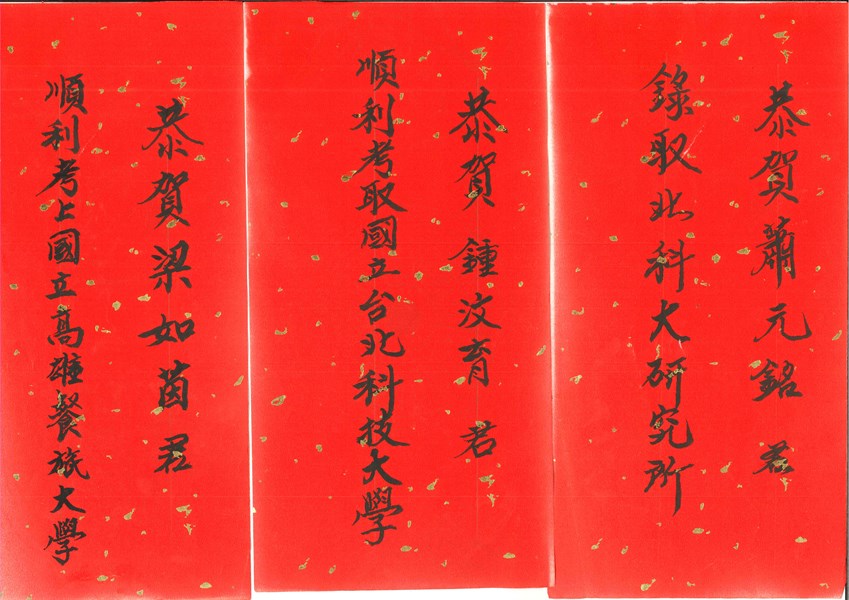 恭賀蕭元銘君
錄取北科大研究所
恭賀鍾汶育君
順利考取國立台北科技大學
恭賀梁如茵君
順利考上國立高雄餐旅大學